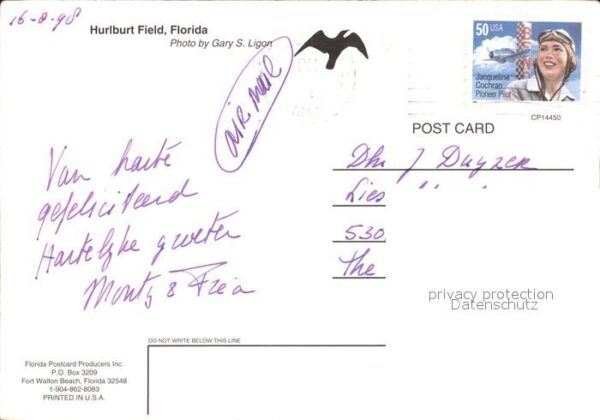 16-8-98
Hurlburt Field, Florida
Photo by Gary S. Ligon
air mail
50 USA
Jacqueline
Cochran
Pioneer Pilot
CP14450
POST CARD
Van harte
gefeliciteerd
Hartelijke groeten
Monty & Fréa
Dhr J Duyzer
Lies " "
530
The
privacy protection
Datenschutz
DO NOT WRITE BELOW THIS LINE
Florida Postcard Producers Inc.
P.O. Box 3209
Fort Walton Beach, Florida 32548
1-904-862-8083
PRINTED IN U.S.A.